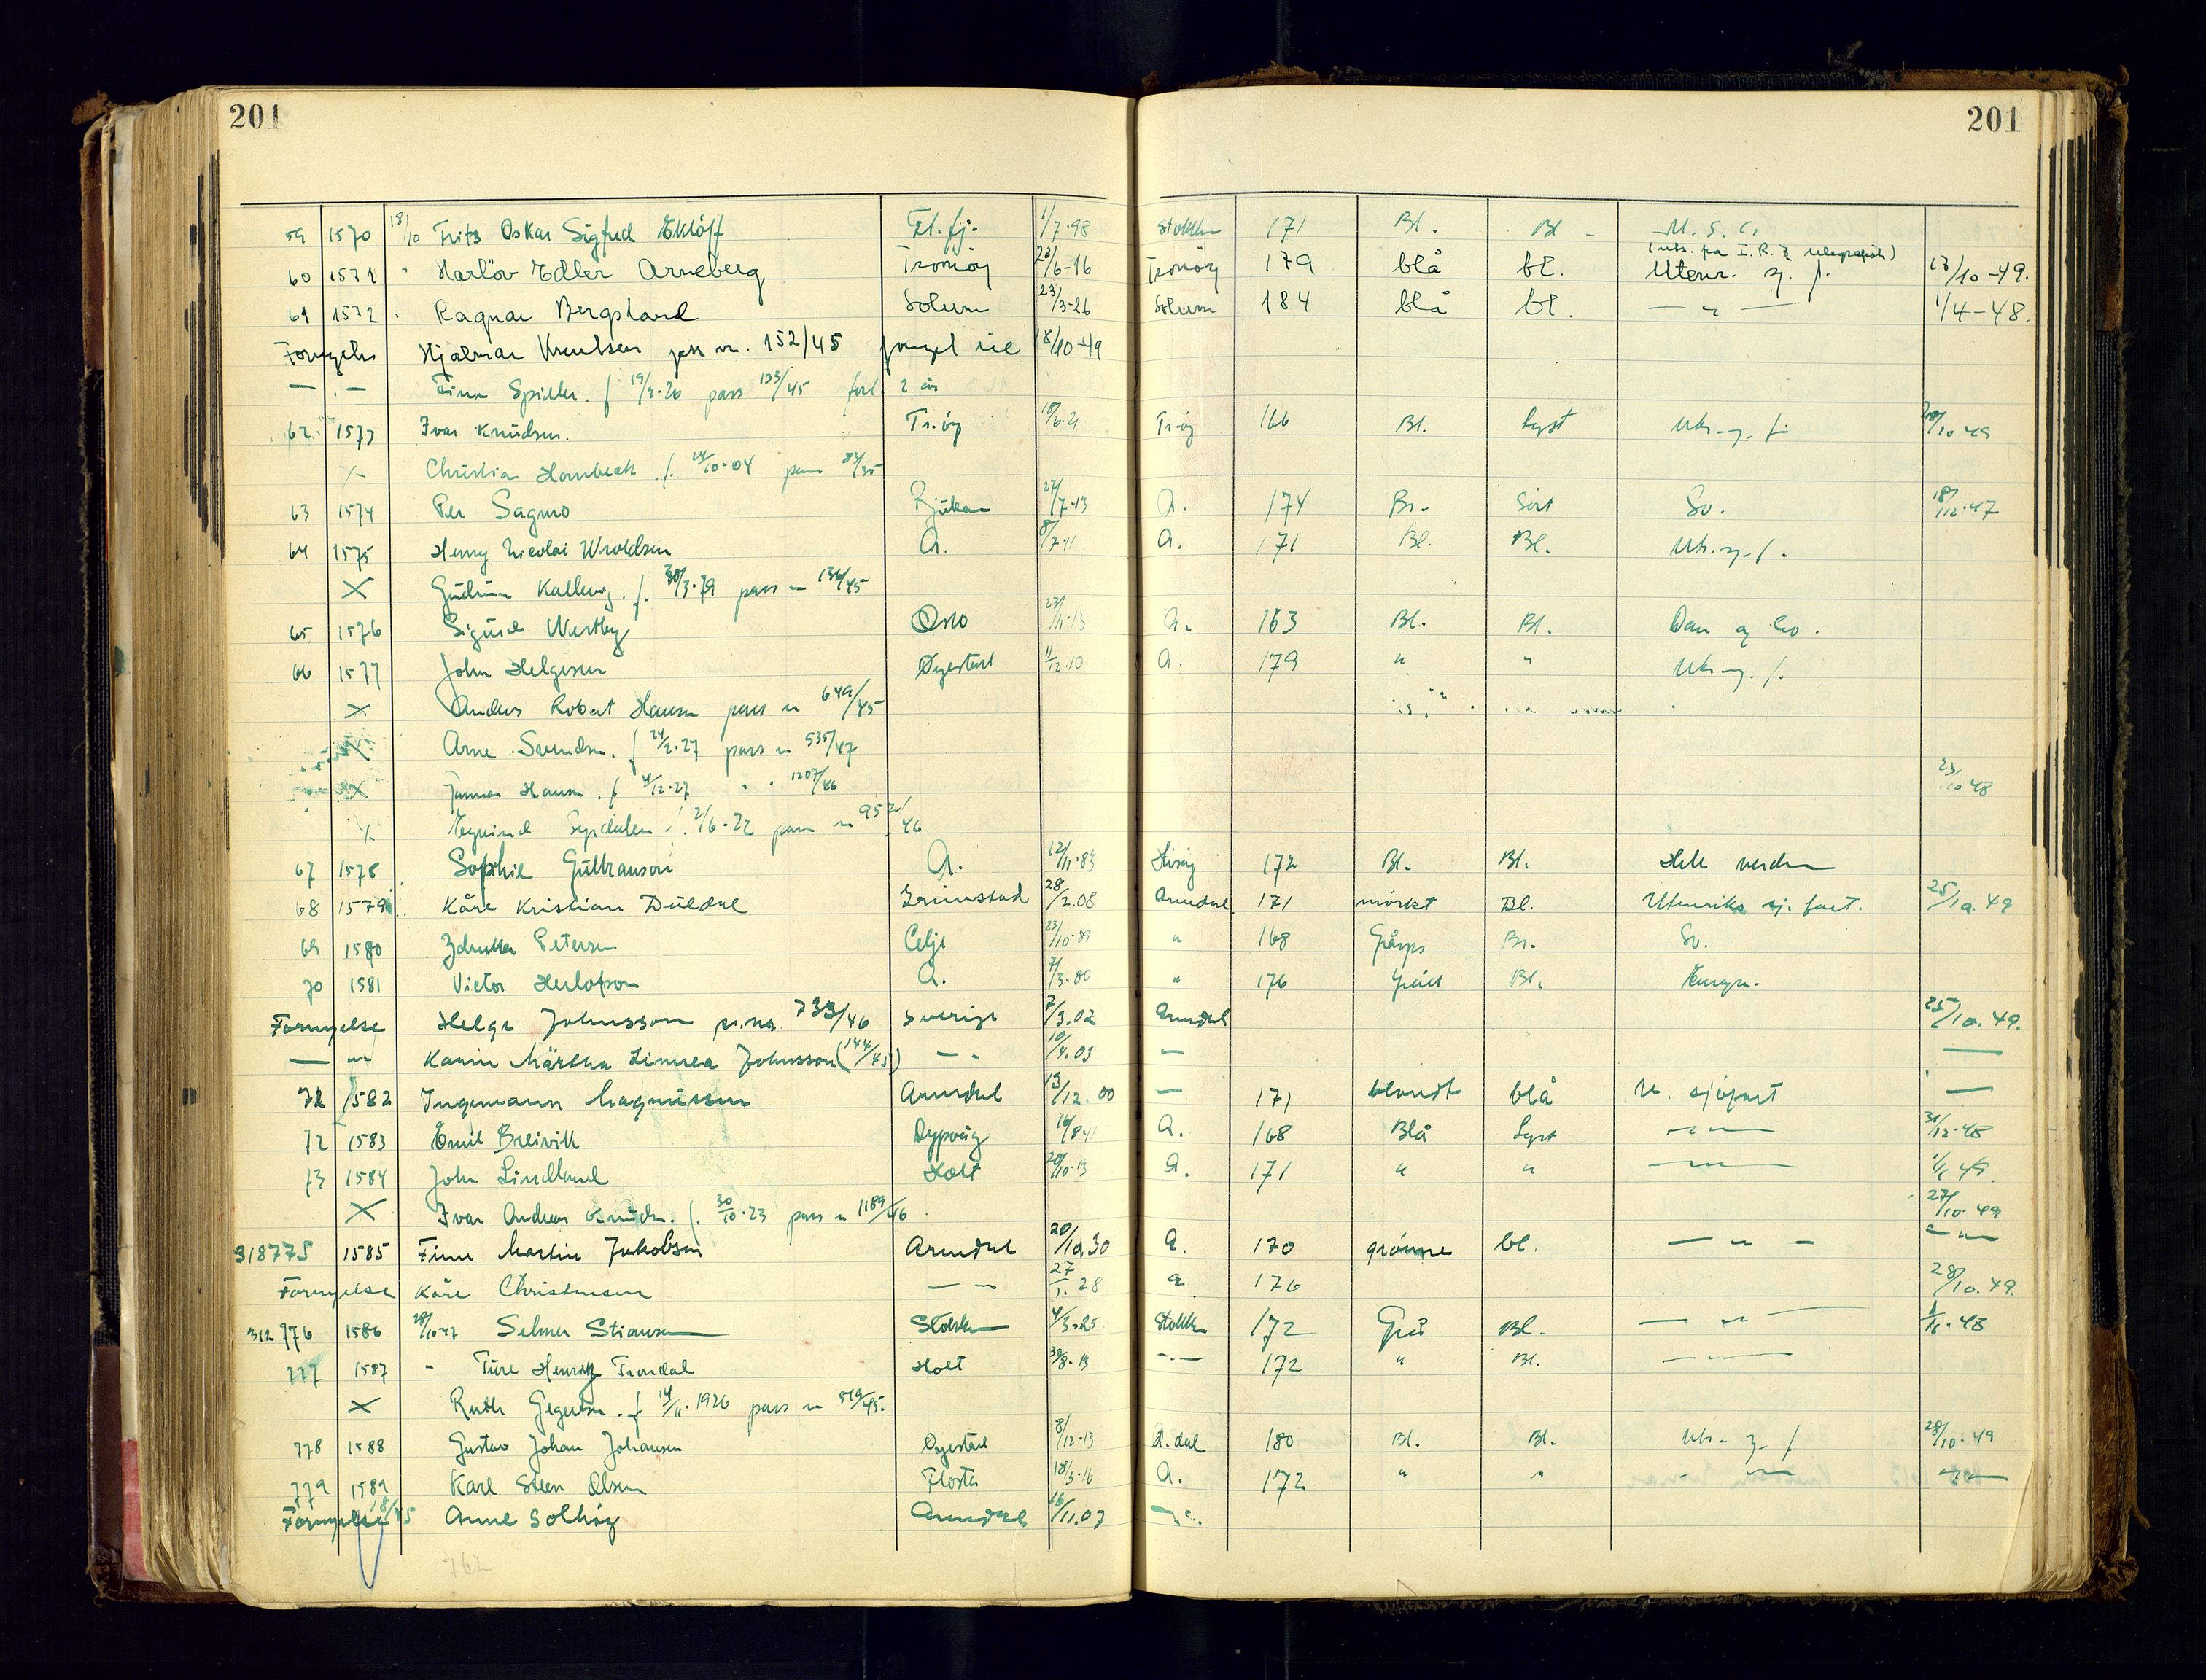 201 201
59 1570 18/10 Frits Oskar Sigfred Eklöff Fl.fj. 1/7-98 Stokken 171 Bl. Bl - U.S.A.
60 1571 " Harlöv Edler Arneberg Tromøy 20/6-16 Tromøy 179 blå bl. Utenr. sj. f. 17/10-49.
61 1572 " Ragnar Bergsland Solum 23/3-26 Solum 184 blå bl. — " — 1/4-48.
Fornyelse Hjalmar Knutsen pass nr. 152/45 18/10-49
— " — Finn f. 19/2-20 pass 133/45 forl. 2 år
62 1573 Ivar Knudsen. Tr.øy 18/6-21 Tr.øy 166 Bl. Lyst Utr. sj. f. 20/10 49
X Christian Hornbeck f. 24/10-04 pass 83/35
63 1574 Per Sagmo Rjukan 27/7-13 A. 174 Br. Sort Sv. 18/12-47
64 1575 Henry Nicolai Wroldsen A. 8/7-11 A. 171 Bl. Bl. Utr. sj. f.
X Gudrun Kallevig. f. 30/3-79 pass nr 136/45
65 1576 Sigurd Westby Oslo 23/11-13 A. 163 Bl. Bl. Dan og Sv.
66 1577 John Helgesen Øyestad 11/12-10 A. 179 " " Utr. sj. f.
X Anders Robert Hansen pass nr 649/45
X Arne Svendsen. f 24/2-27 pass nr 535/47
X Gunnar Hansen. f 4/12-27 " " 1207/46 23/10 48
X Eyvind f. 2/6-22 pass nr 952/46
67 1578 Sophie Gulbranson A. 12/11-83 Hisøy 172 Bl. Bl. Hele verden
68 1579 Kåre Kristian Duedal Grimstad 28/2.08 Arendal 171 mørkt Bl. Utenriks sj. fart. 25/10.49
69 1580 Petersen Celje 23/10-89 " 168 Br. Sv.
70 1581 Victor Herlofson A. 7/3-80 " 176 Grått Bl. Europa.
Fornyelse Helge Johnsson ps.nr. 733/46 Sverige 7/3.02 Arendal 25/10.49.
— " — Karin Märtha Linnea Johnsson (144/45) — " 10/4.03 — —
72 1582 Ingemann Magnussen Arendal 13/12.00 — 171 blondt blå u. sjøfart —
72 1583 Emil Breivik Dypvåg 16/8-11 A. 168 Blå Lyst — " — 31/12-48
73 1584 John Lindland Holt 20/10-13 A. 171 " " — " — 1/11 49.
X Ivar Andreas Knudsen. f. 30/10-23 pass nr 1189/46 27/10-49
318775 1585 Finn Martin Jakobsen Arendal 20/10.30 A. 170 grønne bl. — " — — " —
Fornyelse Kåre Christensen — " — 27/1.28 a 176 28/10.49.
312 776 1586 28/10-47 Selmer Stiansen Stokken 4/3-25 Stokken 172 Grå Bl. — " — 1/11-48
777 1587 - Ture Henrik Trondal Holt 30/8-13 — " — 172 " Bl. — " —
X Ruth f 14/11-1926 pass nr 519/45.
778 1588 Gustav Johan Johansen Øyestad 8/12-13 A.dal 180 Bl. Bl. Utr. sj. f 28/10-49
779 1589 Karl Steen Olsen Flosta 18/3-16 A. 172 " " - " — — " —
Fornyelse 18/45 Anne Solhøy Arendal 16/11.07 — " —
762